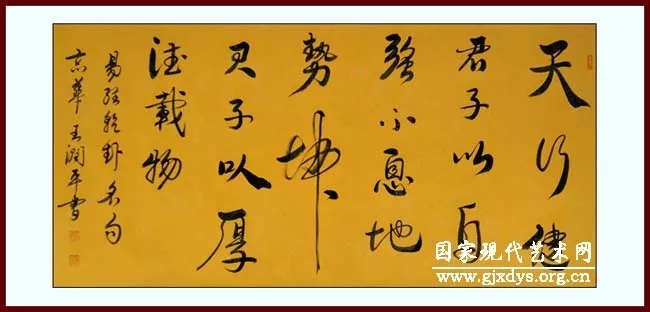 天行健
君子以自
強不息地
勢坤
君子以厚
德載物
易經乾卦名句
京華王潤平書
国家现代艺术网
www.gjxdys.org.cn